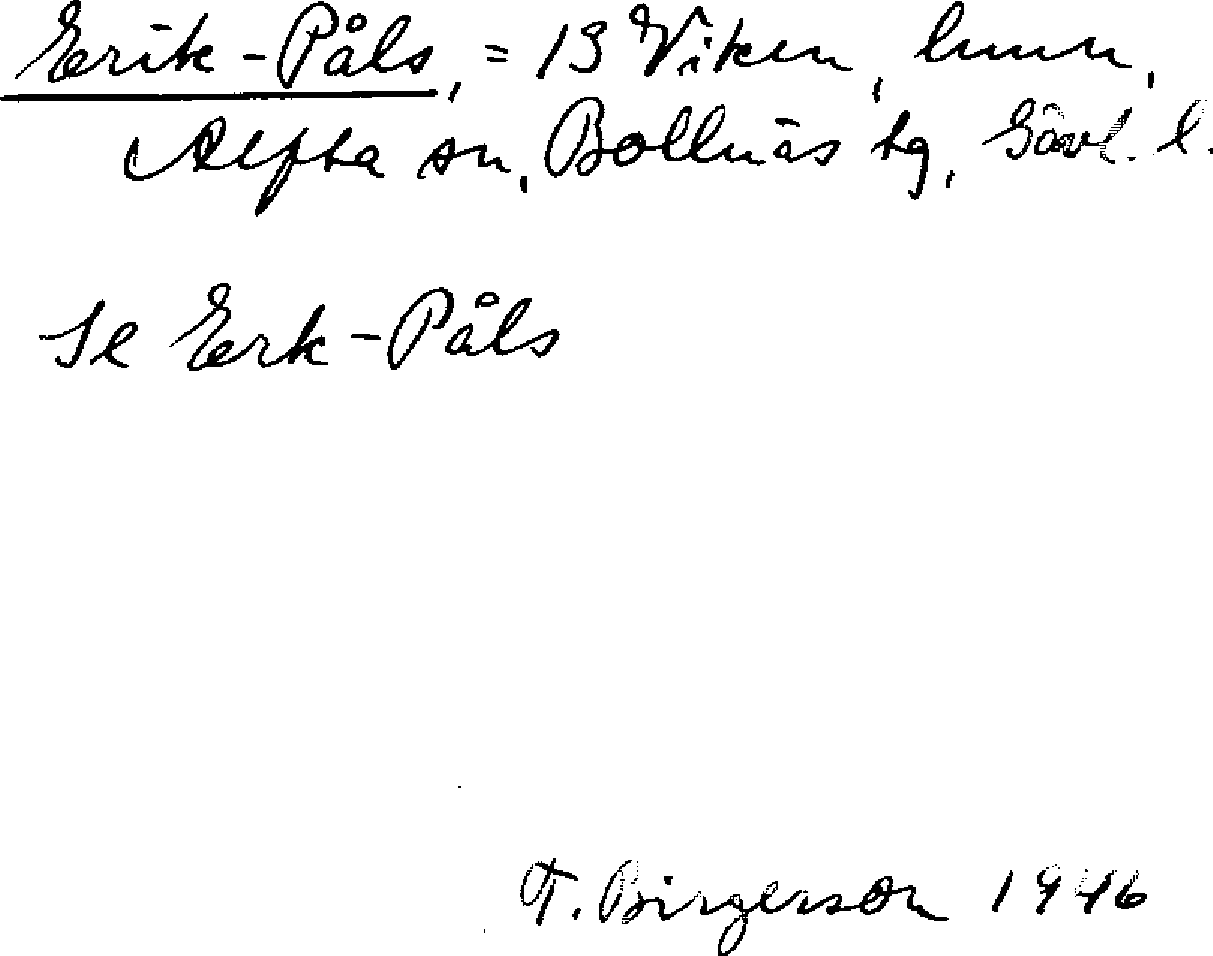 Erik-Påls, = 13 Viken, hmn,
Alfta sn, Bollnäs tg, Gävl. l.
Se Erk-Påls
T. Birgerson 1946